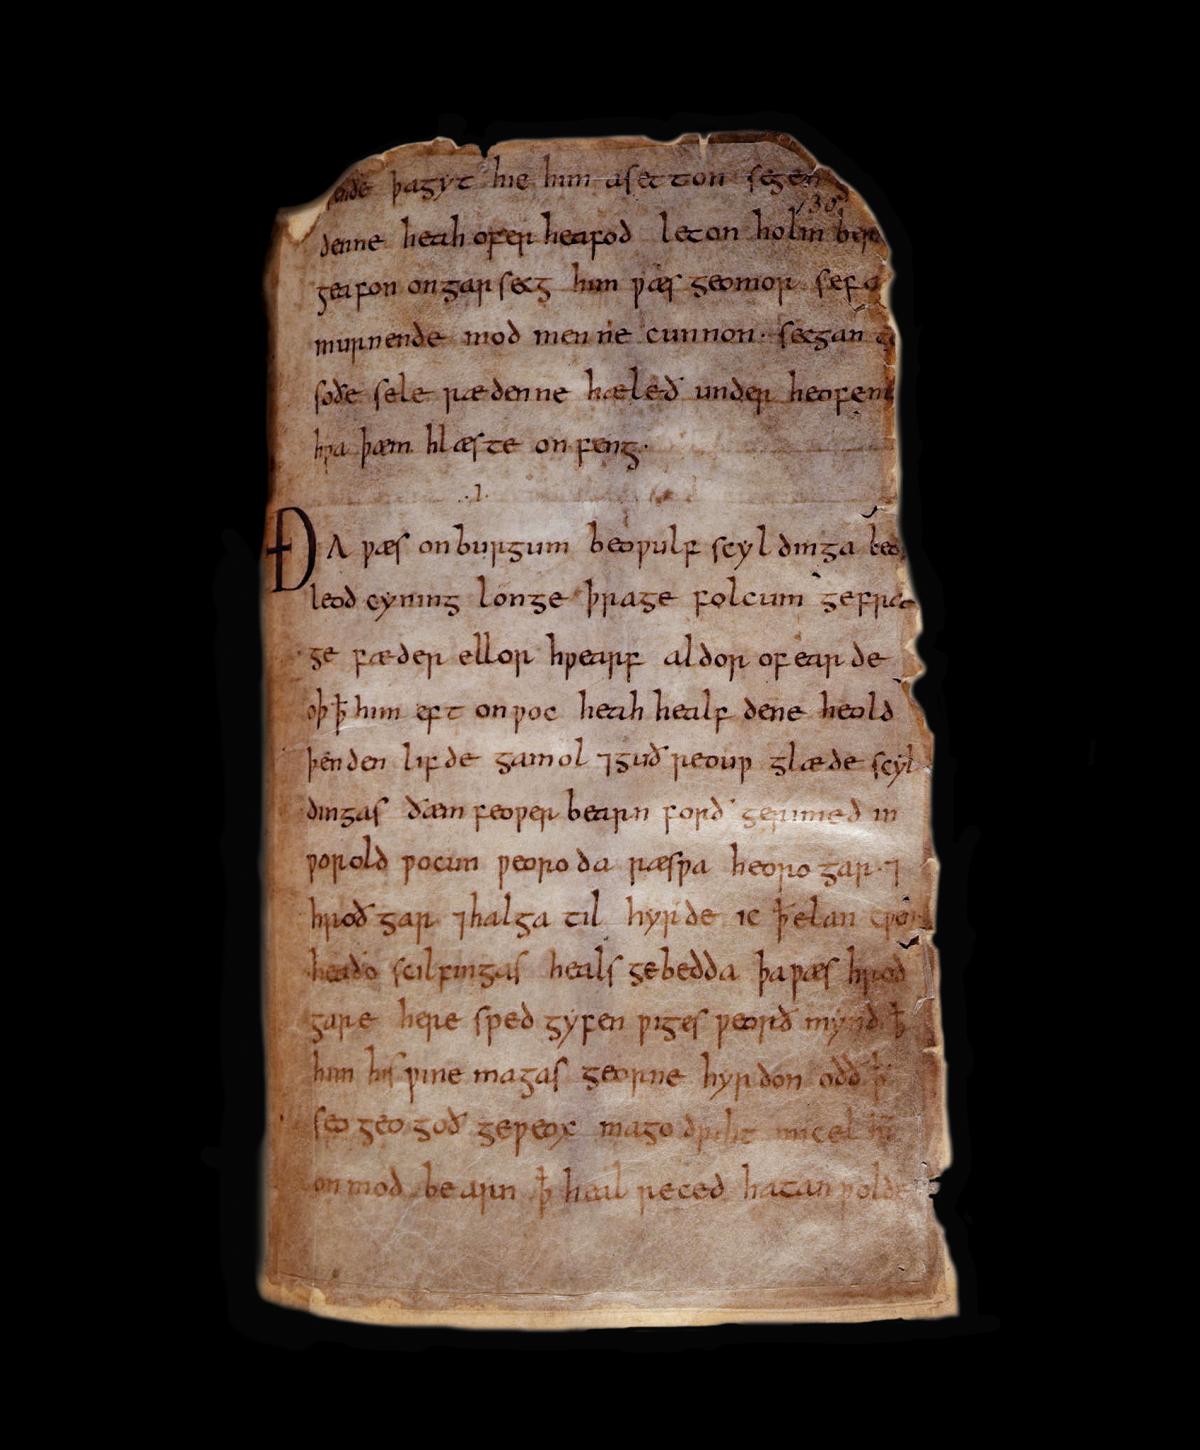 ende þagyt hie him asetton segen
130
denne heah ofer heafod leton holm ber
geafon on garsecg him ƿæs geomor sefa
murnende mod men ne cunnon · secgan
soðe sele rædenne hæleð under heofenu
hƿa þæm hlæste onfeng ·
.I.
ÐA ƿæs on burgum beoƿulf scyldinga leo
leod cyning longe þrage folcum gefræ
ge fæder ellor hƿearf aldor of earde
oþꝥ him eft onƿoc heah healfdene heold
þenden lifde gamol ⁊ guð reouƿ glæde scyl
dingas ðæm feoƿer bearn forð gerimed in
ƿorold ƿocun ƿeoroda ræsƿa heorogar · ⁊
hroðgar ⁊ halga til hyrde ic ꝥ elan cƿen
heaðo scilfingas heals gebedda þa ƿæs hroð
gare here sped gyfen ƿiges ƿeorð mynd ꝥ
him his ƿine magas georne hyrdon oðð ꝥ
seo geogoð geƿeox mago driht micel
on mod bearn ꝥ heal reced hatan ƿolde